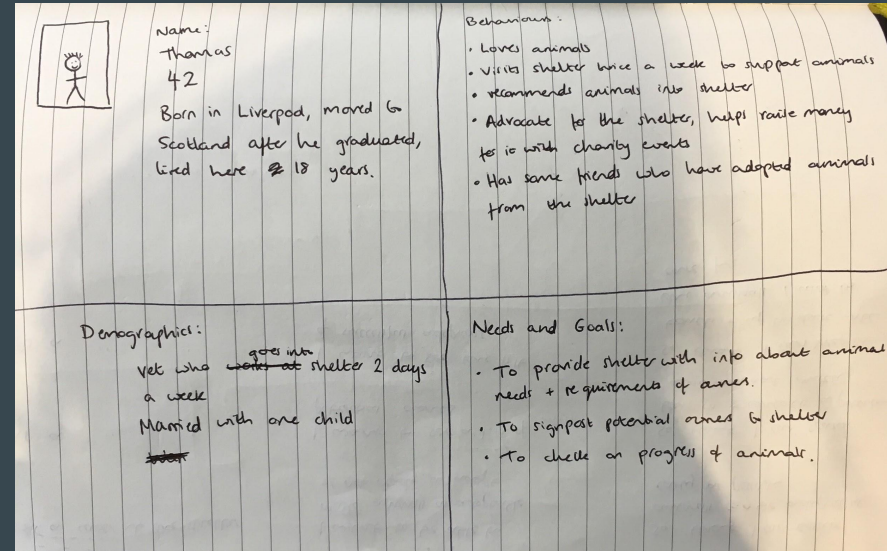 Name:
Thomas
42
Born in Liverpool, moved to
Scotland after he graduated,
lived here 18 years.
Behaviours:
• Loves animals
• Visits shelter twice a week to support animals
• recommends animals into shelter
• Advocate for the shelter, helps raise money
for it with charity events
• Has some friends who have adopted animals
from the shelter
Demographics:
goes into
Vet who works at shelter 2 days
a week
Married with one child
Needs and Goals:
• To provide shelter with info about animal
needs + requirements of owners.
• To signpost potential owners to shelter
• To check on progress of animals.